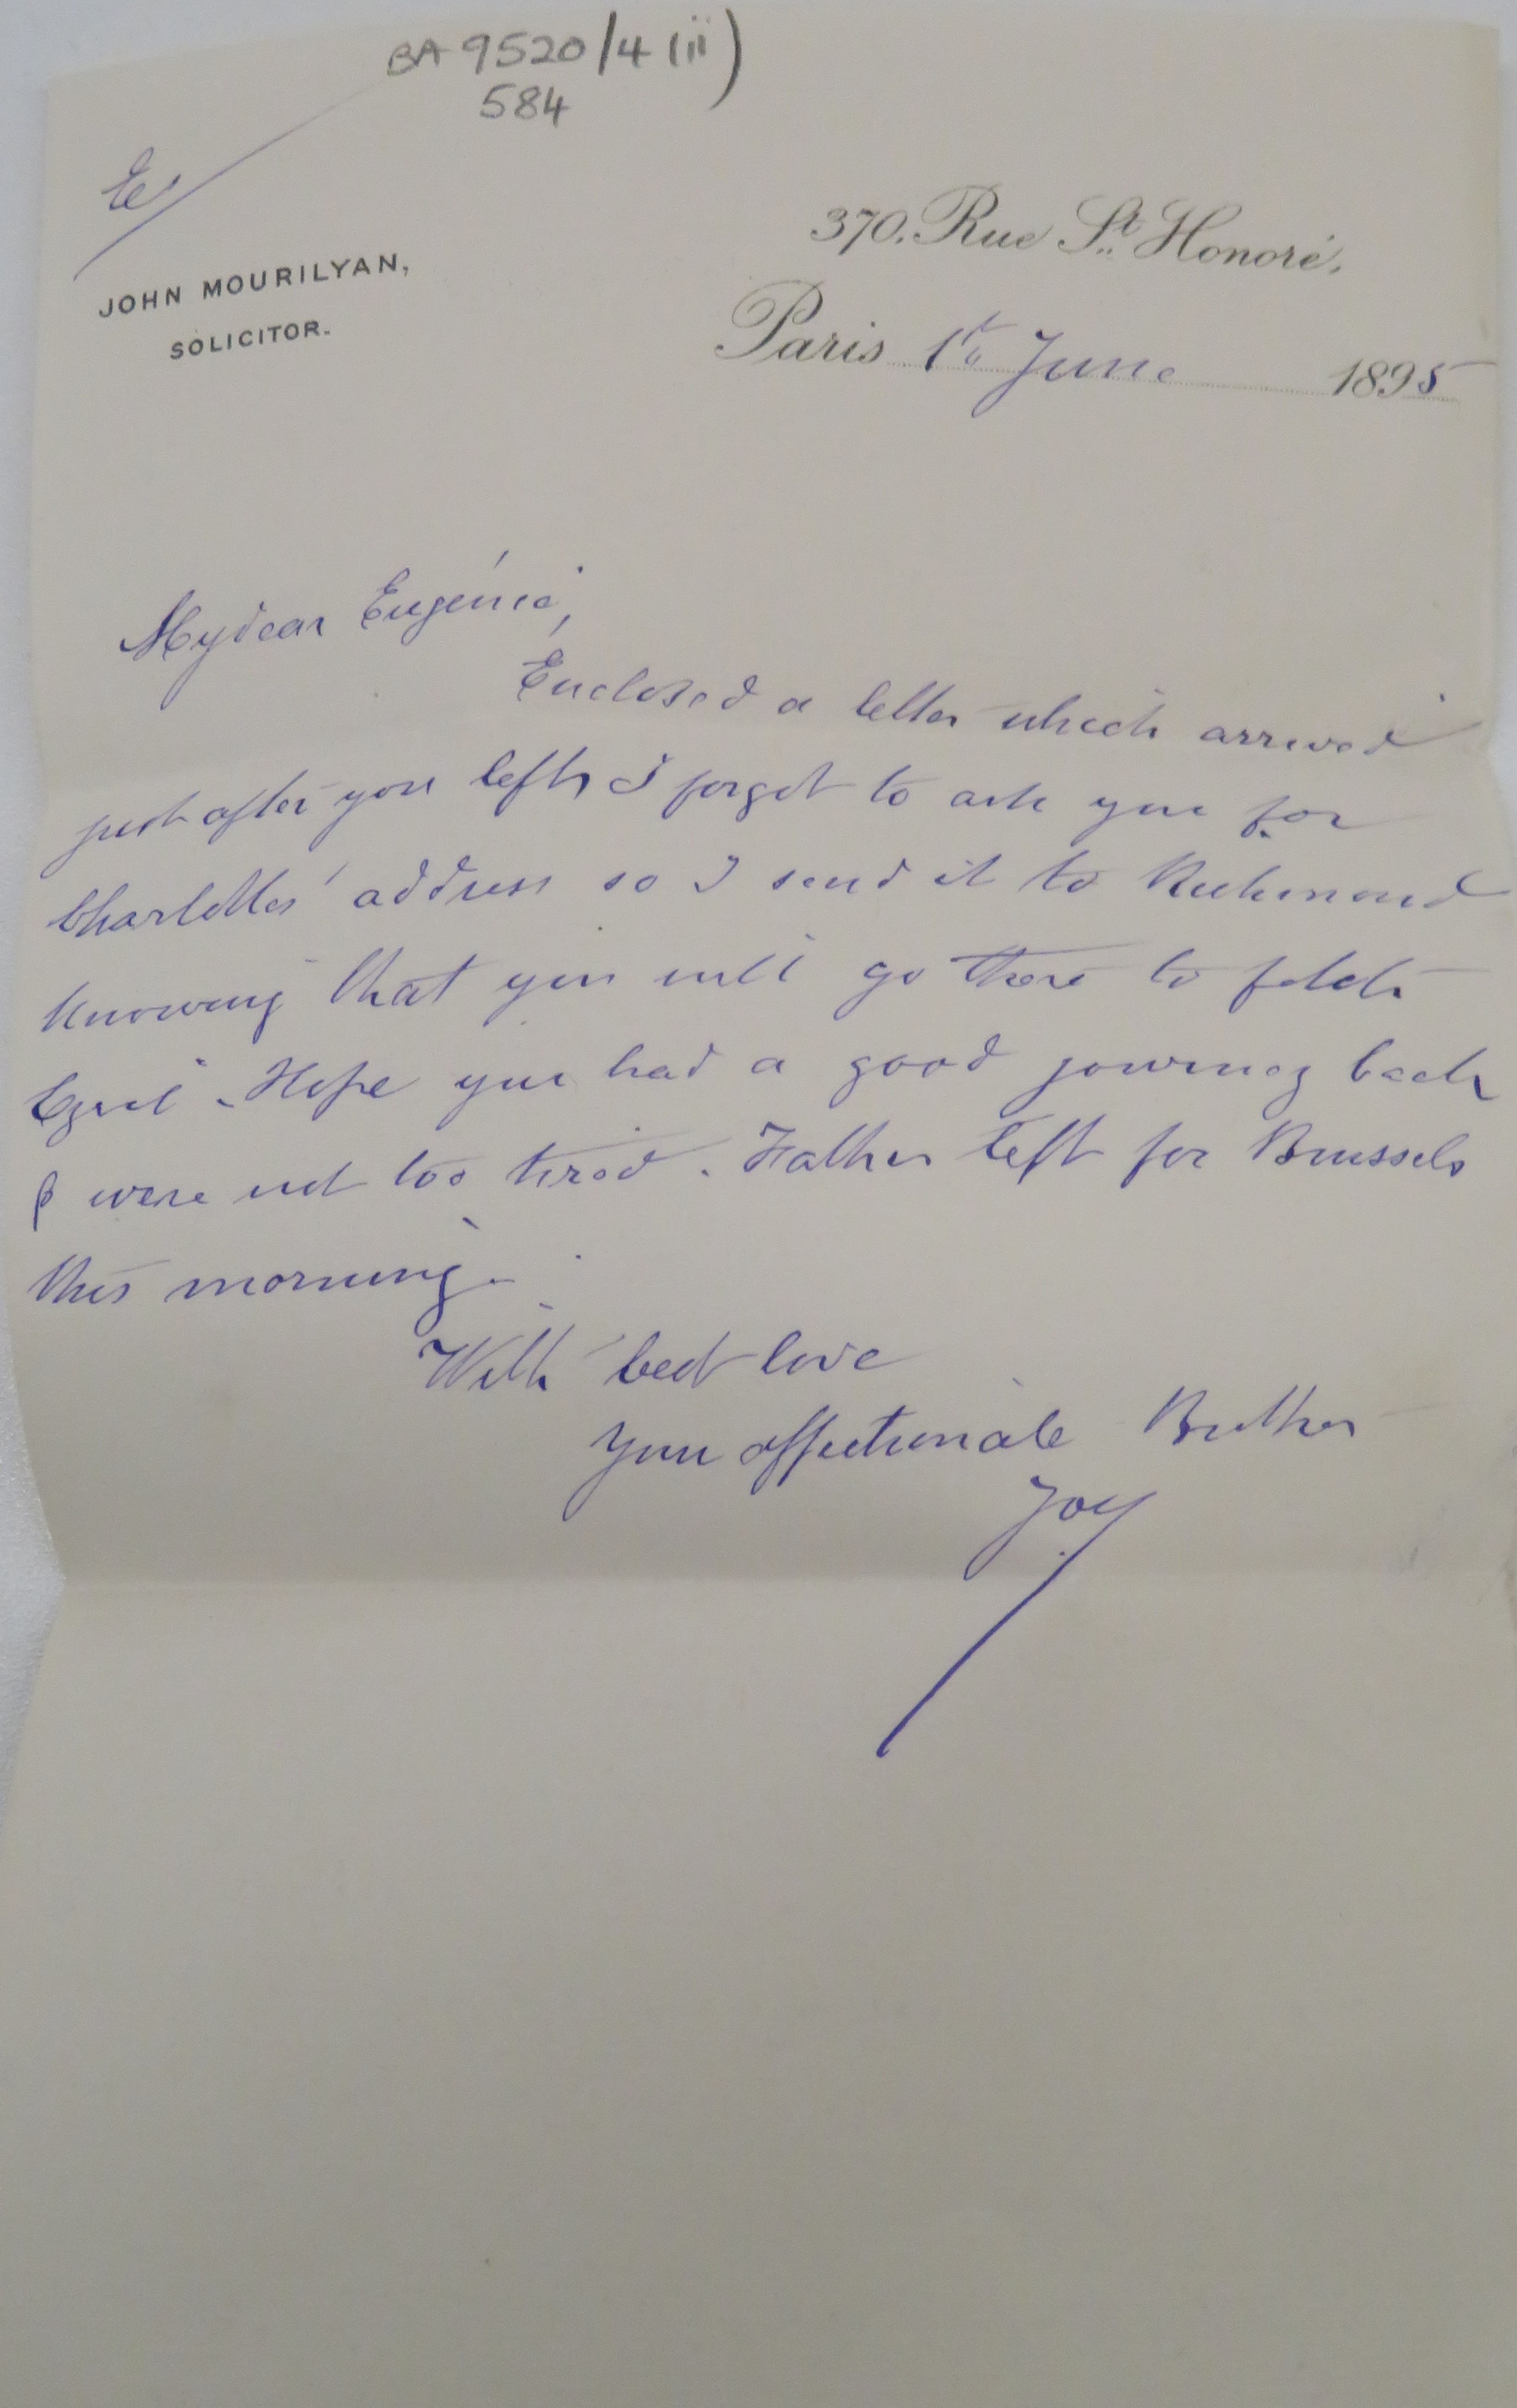 BA 9520/4 (ii)
584
JOHN MOURILYAN,
SOLICITOR.
370. Rue St. Honoré.
Paris 1st June 1895
My dear Eugénie,
Enclosed a letter which arrived
just after you left, I forgot to ask you for
Charlotte's address so I send it to Richmond
knowing that you will go there to fetch
Cyril. Hope you had a good journey back
& were not too tired. Father left for Brussels
this morning.
With best love
your affectionate Brother
Joy